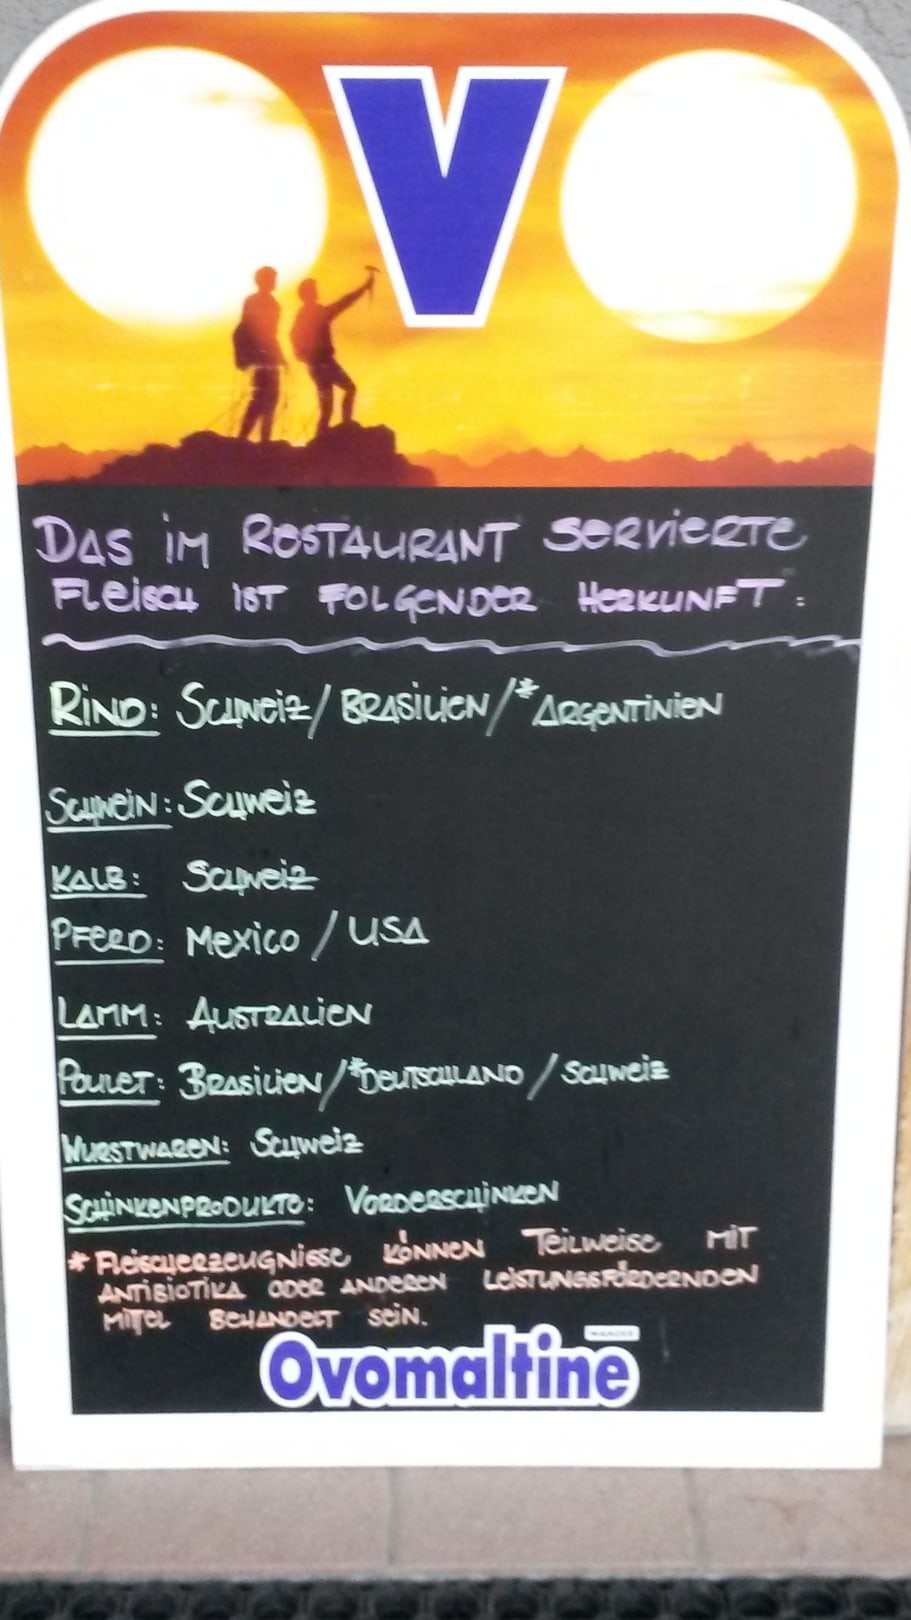 OVO
DAS IM RESTAURANT SERVIERTE
FLEISCH IST FOLGENDER HERKUNFT:
RIND: SCHWEIZ / BRASILIEN / *ARGENTINIEN
SCHWEIN: SCHWEIZ
KALB: SCHWEIZ
PFERD: MEXICO / USA
LAMM: AUSTRALIEN
POULET: BRASILIEN / *DEUTSCHLAND / SCHWEIZ
WURSTWAREN: SCHWEIZ
SCHINKENPRODUKTE: VORDERSCHINKEN
* FLEISCHERZEUGNISSE KÖNNEN TEILWEISE MIT
ANTIBIOTIKA ODER ANDEREN LEISTUNGSFÖRDERNDEN
MITTEL BEHANDELT SEIN.
WANDER
Ovomaltine